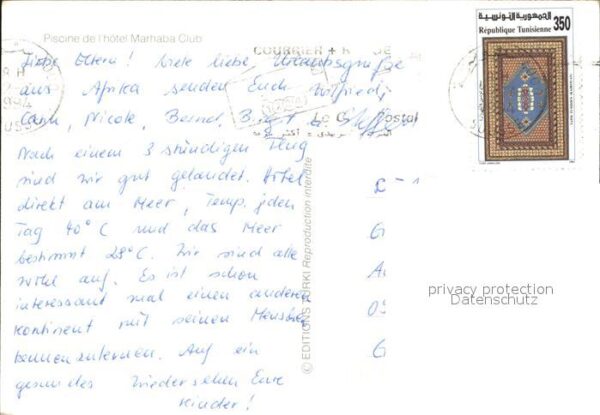 Piscine de l'hôtel Marhaba Club
Liebe Eltern! Viele liebe Urlaubsgrüße
aus Afrika senden Euch Wilfried,
Nicole, Bernd,
Nach einem 3 stündigen Flug
sind wir gut gelandet. Hotel
direkt am Meer, Temp. jeden
Tag 40°C und das Meer
bestimmt 28°C. Wir sind alle
wohl auf. Es ist schon
interessant mal einen anderen
Kontinent mit seinen Menschen
kennenzulernen. Auf ein
gesundes Wiedersehen Eure
Kinder!
COURRIER +
Postal
© EDITIONS TURKI Reproduction interdite
الجمهورية التونسية
République Tunisienne
350
privacy protection
Datenschutz